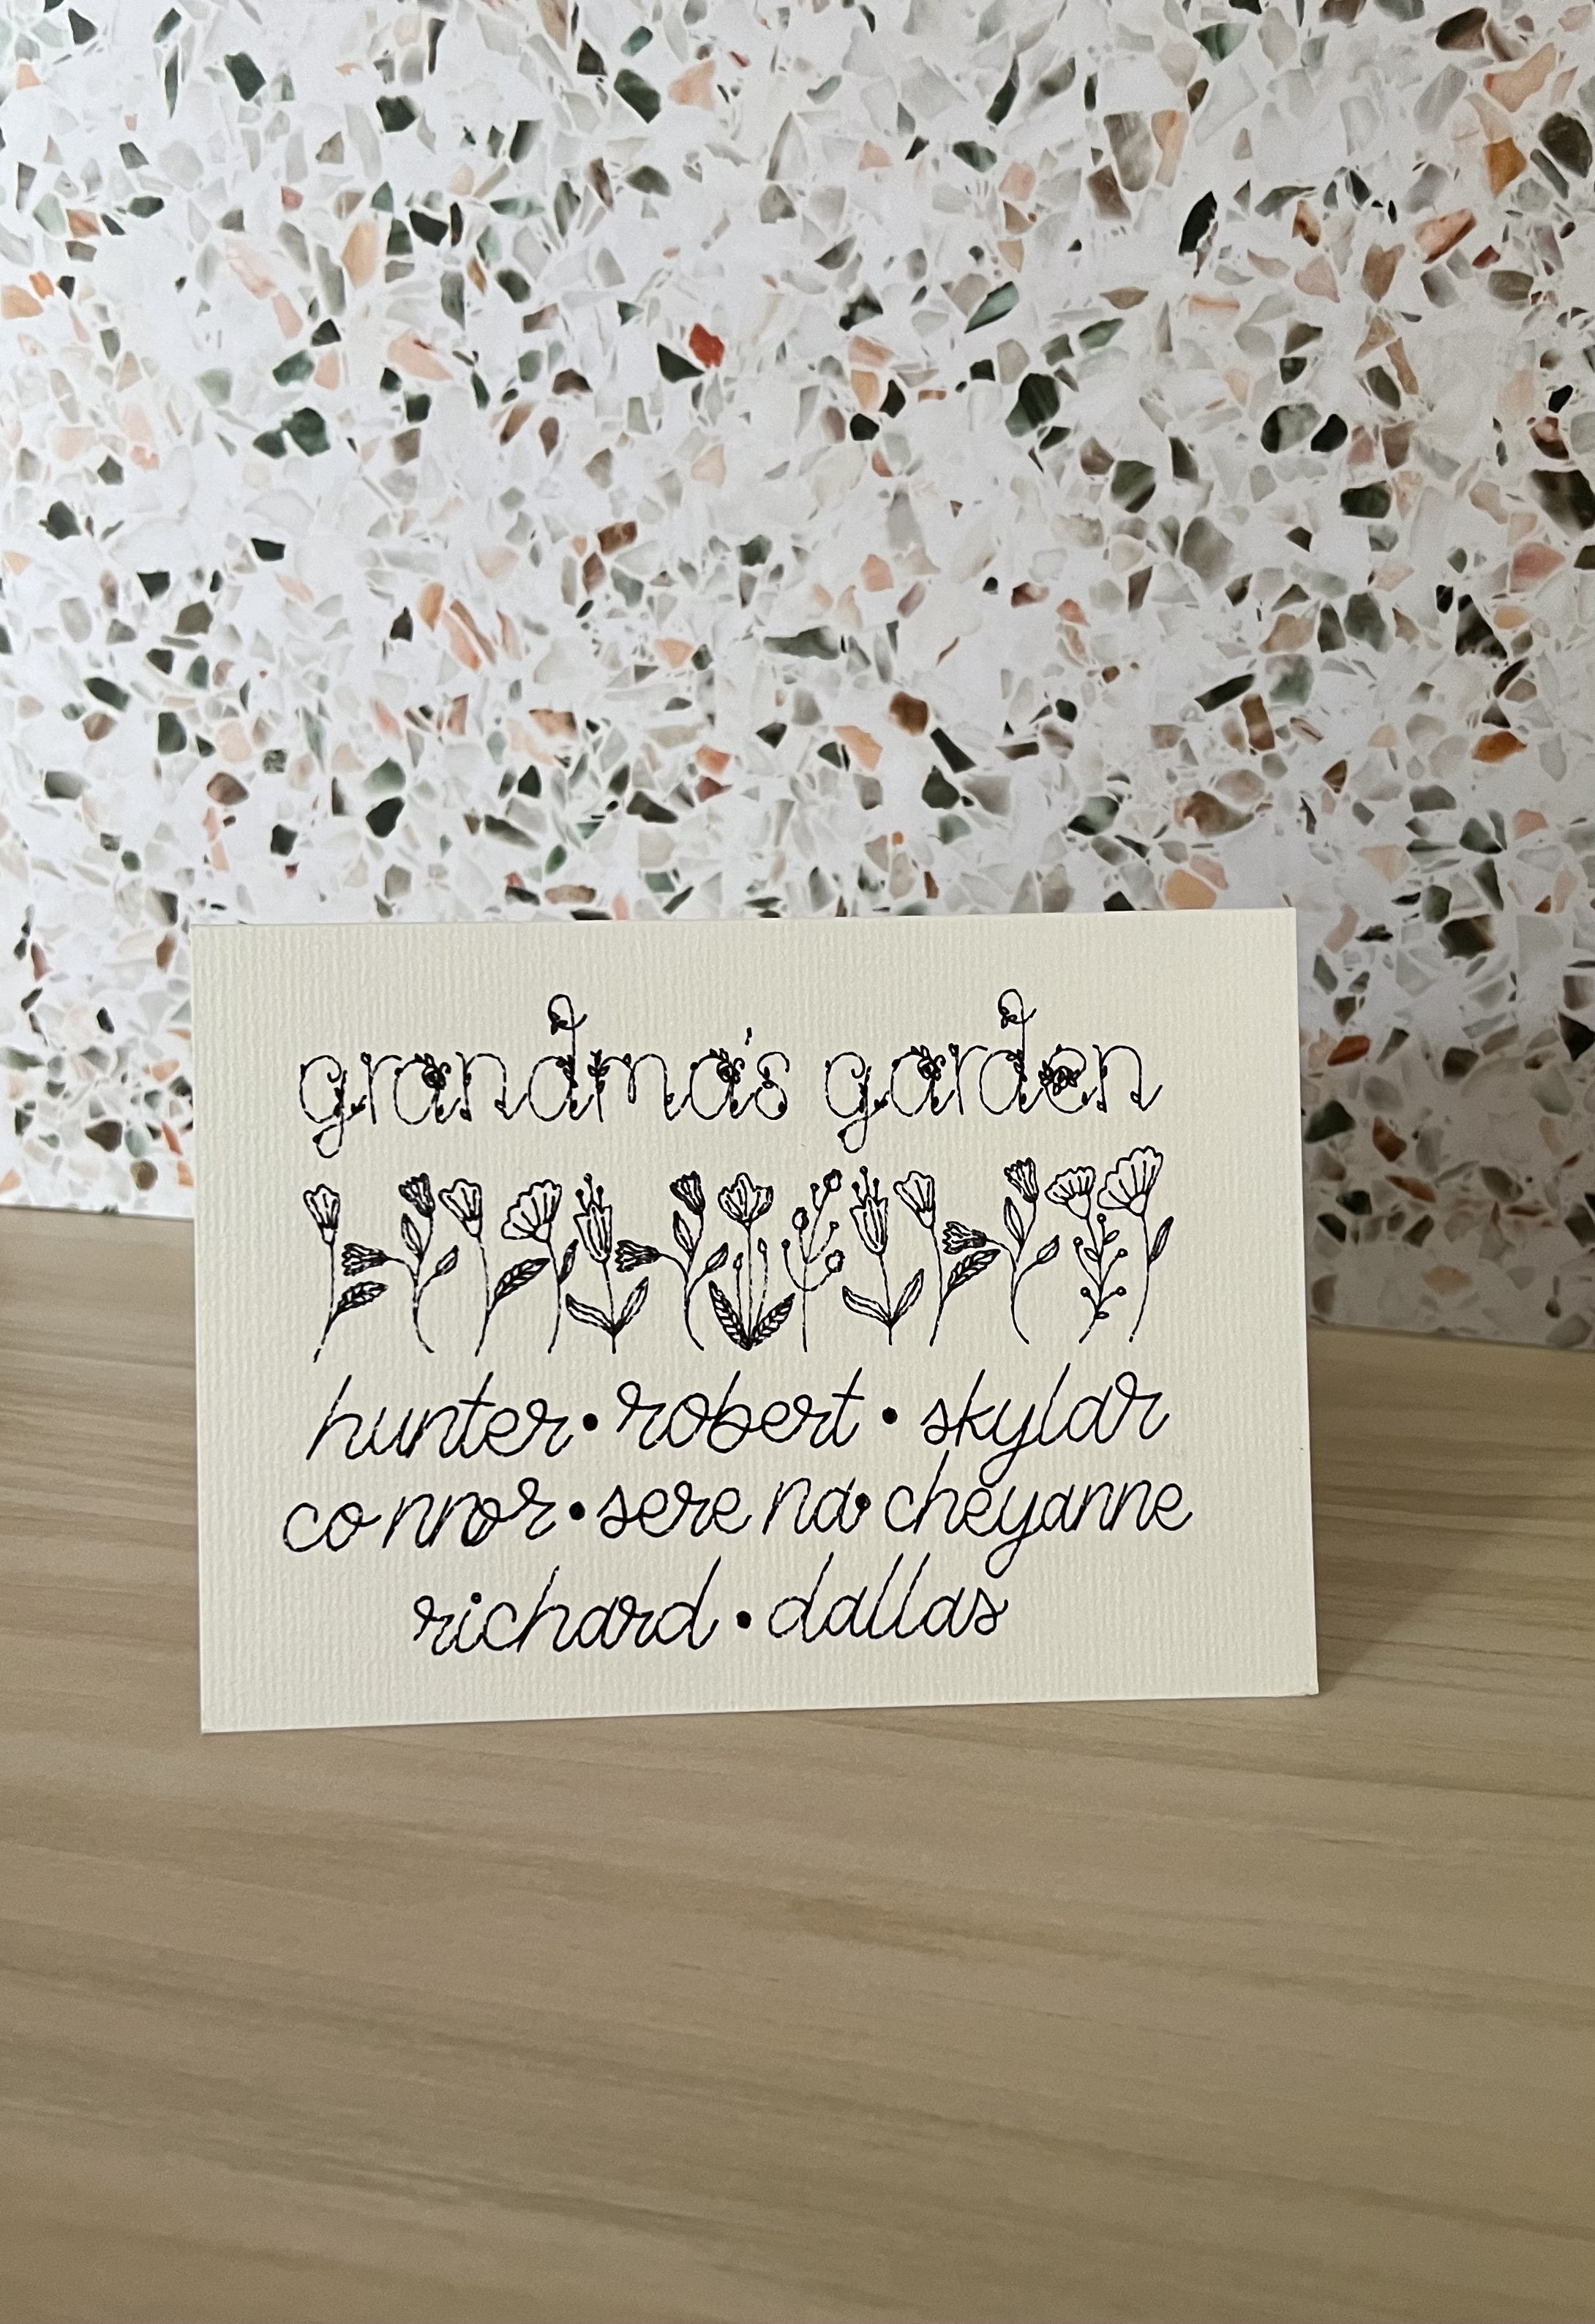 grandma's garden
hunter • robert • skylar
connor • serena • cheyanne
richard • dallas